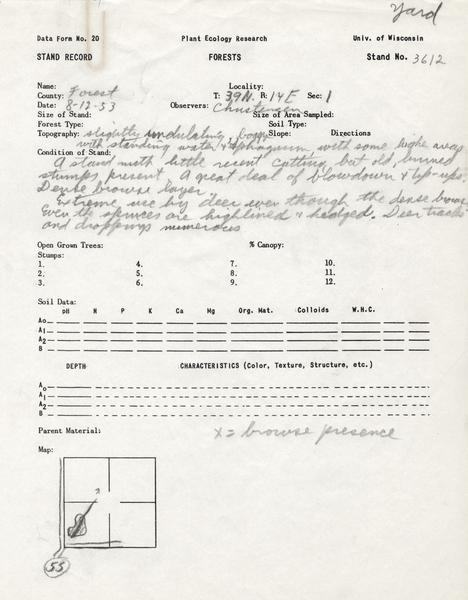 Yard
Data Form No. 20 Plant Ecology Research Univ. of Wisconsin
STAND RECORD FORESTS Stand No. 3612
Name: Locality:
County: Forest T: 39N R: 14E Sec: 1
Date: 8-12-53 Observers: Christensen
Size of Stand: Size of Area Sampled:
Forest Type: Soil Type:
Topography: slightly undulating, boggy Slope: Directions
with standing water & sphagnum with some higher areas
Condition of Stand:
A stand with little recent cutting, but old, burned
stumps present. A great deal of blowdown & tip-ups.
Dense browse layer.
Extreme use by deer even though the dense browse
Even the spruces are highlined & hedged. Deer tracks
and droppings numerous
Open Grown Trees: % Canopy:
Stumps:
1. 4. 7. 10.
2. 5. 8. 11.
3. 6. 9. 12.
Soil Data:
pH N P K Ca Mg Org. Mat. Colloids W.H.C.
A₀
A₁
A₂
B
DEPTH CHARACTERISTICS (Color, Texture, Structure, etc.)
A₀
A₁
A₂
B
Parent Material: x = browse presence
Map:
?
55